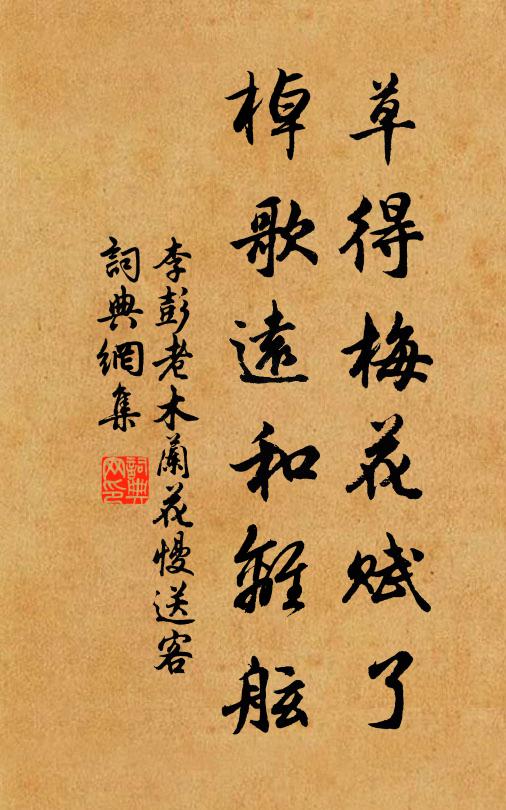 草得梅花賦了
棹歌遠和離舷
李彭老木蘭花慢送客
詞典網集
詞典網印